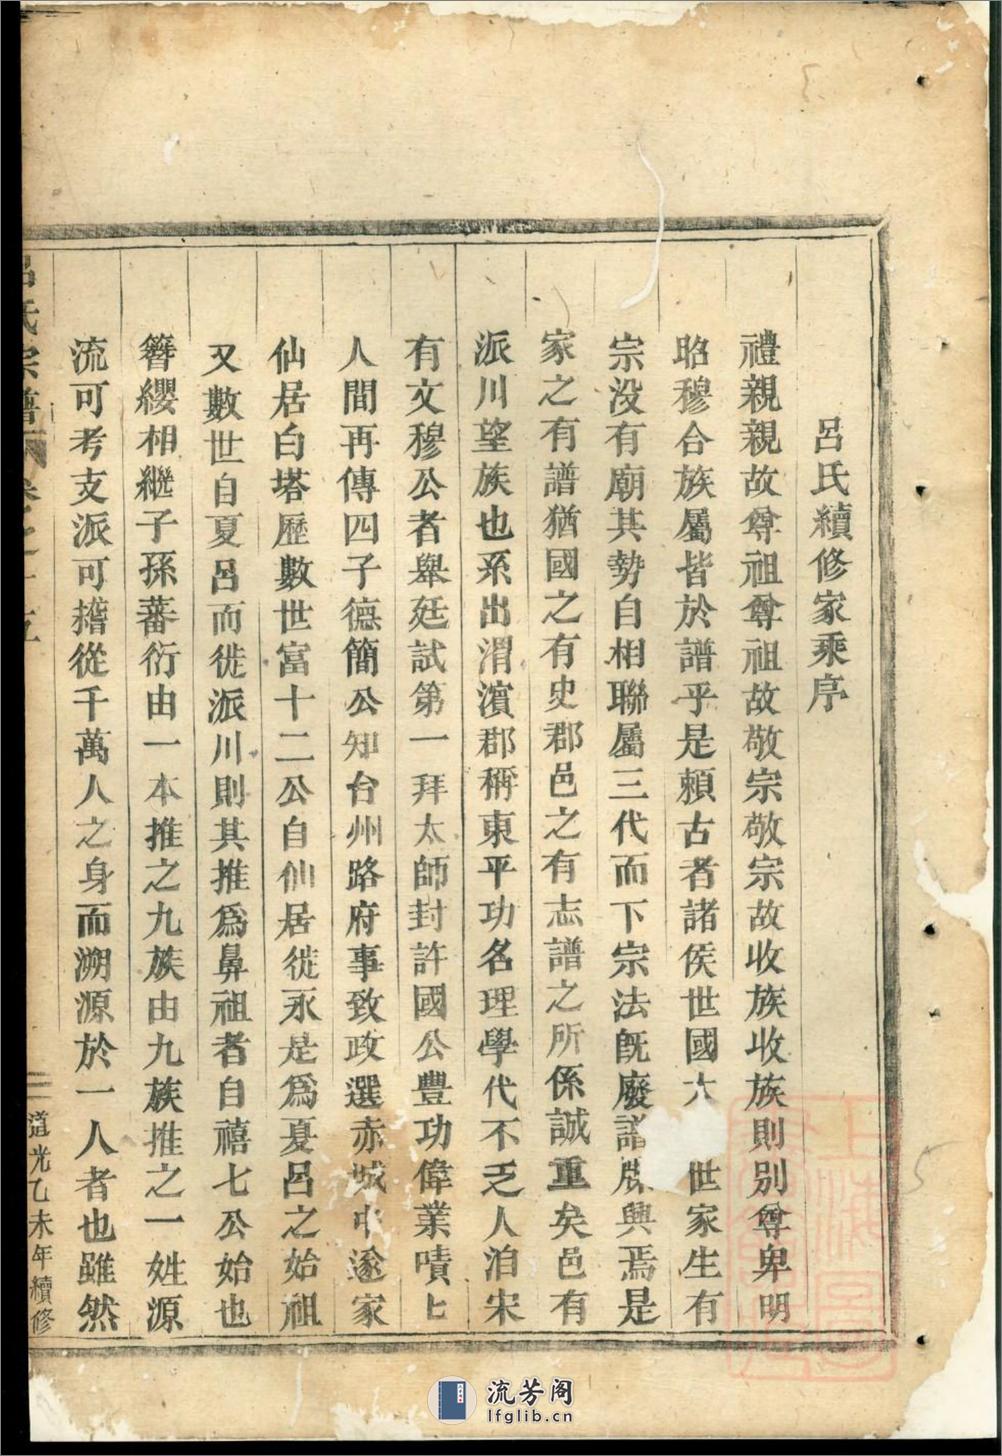 呂氏續修家乘序
禮親親故尊祖尊祖故敬宗敬宗故收族收族則別尊卑明
昭穆合族屬皆於譜乎是賴古者諸侯世國大世家生有
宗没有廟其勢自相聯屬三代而下宗法旣廢譜牒興焉是
家之有譜猶國之有史郡邑之有志譜之所係誠重矣邑有
派川望族也系出渭濱郡稱東平功名理學代不乏人洎宋
有文穆公者舉廷試第一拜太師封許國公豐功偉業嘖七
人間再傳四子德簡公知台州路府事致政選赤城中遂家
仙居白塔歷數世富十二公自仙居徙永是爲夏呂之始祖
又數世自夏呂而徙派川則其推爲鼻祖者自禧七公始也
簪纓相繼子孫蕃衍由一本推之九族由九族推之一姓源
流可考支派可稽從千萬人之身而溯源於一人者也雖然
呂氏宗譜 卷之十五
二 道光乙未年續修
5
流芳阁
lfglib.cn